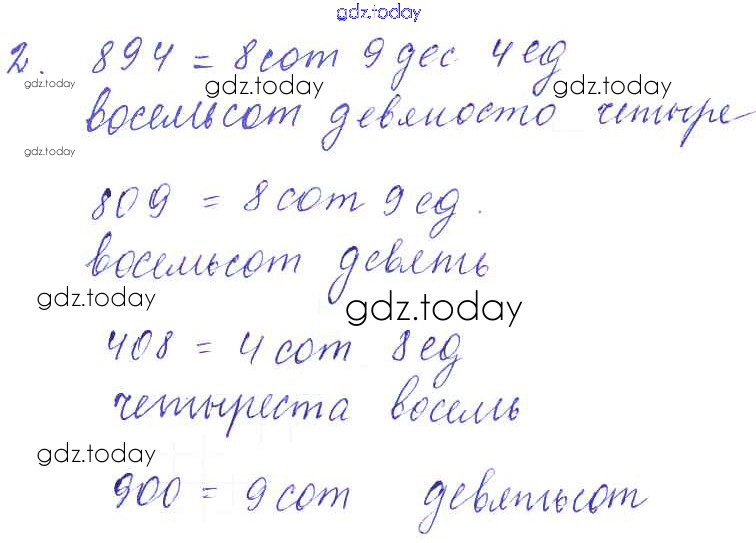 gdz.today
2. 894 = 8 сот 9 дес 4 ед
gdz.today gdz.today gdz.today
восемьсот девяносто четыре
gdz.today
809 = 8 сот 9 ед.
восемьсот девять
gdz.today gdz.today
408 = 4 сот 8 ед
четыреста восемь
gdz.today
900 = 9 сот девятьсот